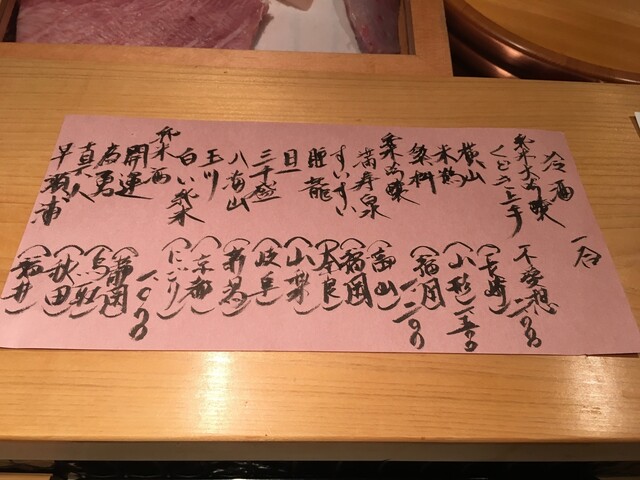 冷酒 一合
純米大吟醸
くどき上手 不夢想 二一〇〇
横山 (長崎)
米鶴 (山形) 一五〇〇
(福岡) 一二〇〇
純米吟醸
満寿泉 (富山)
すいすい (福岡)
睡龍 (奈良)
(山梨)
三千盛 (岐阜)
八海山 (新潟)
玉川 (京都)
白い純米 (にごり)
純米酒 一〇〇〇
開運 (静岡)
為勇 (鳥取)
真人 (秋田)
早瀬浦 (福井)